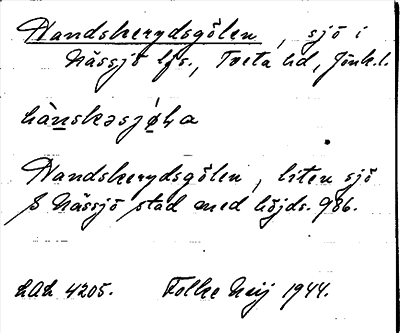 Handskerydsgölen, sjö i
Nässjö lfs., Tveta hd, Jönk.l.
hànskəsjø̀ɦa
Handskerydsgölen, liten sjö
S Nässjö stad med höjds. 986.
LAL 4205. Folke Neij 1944.